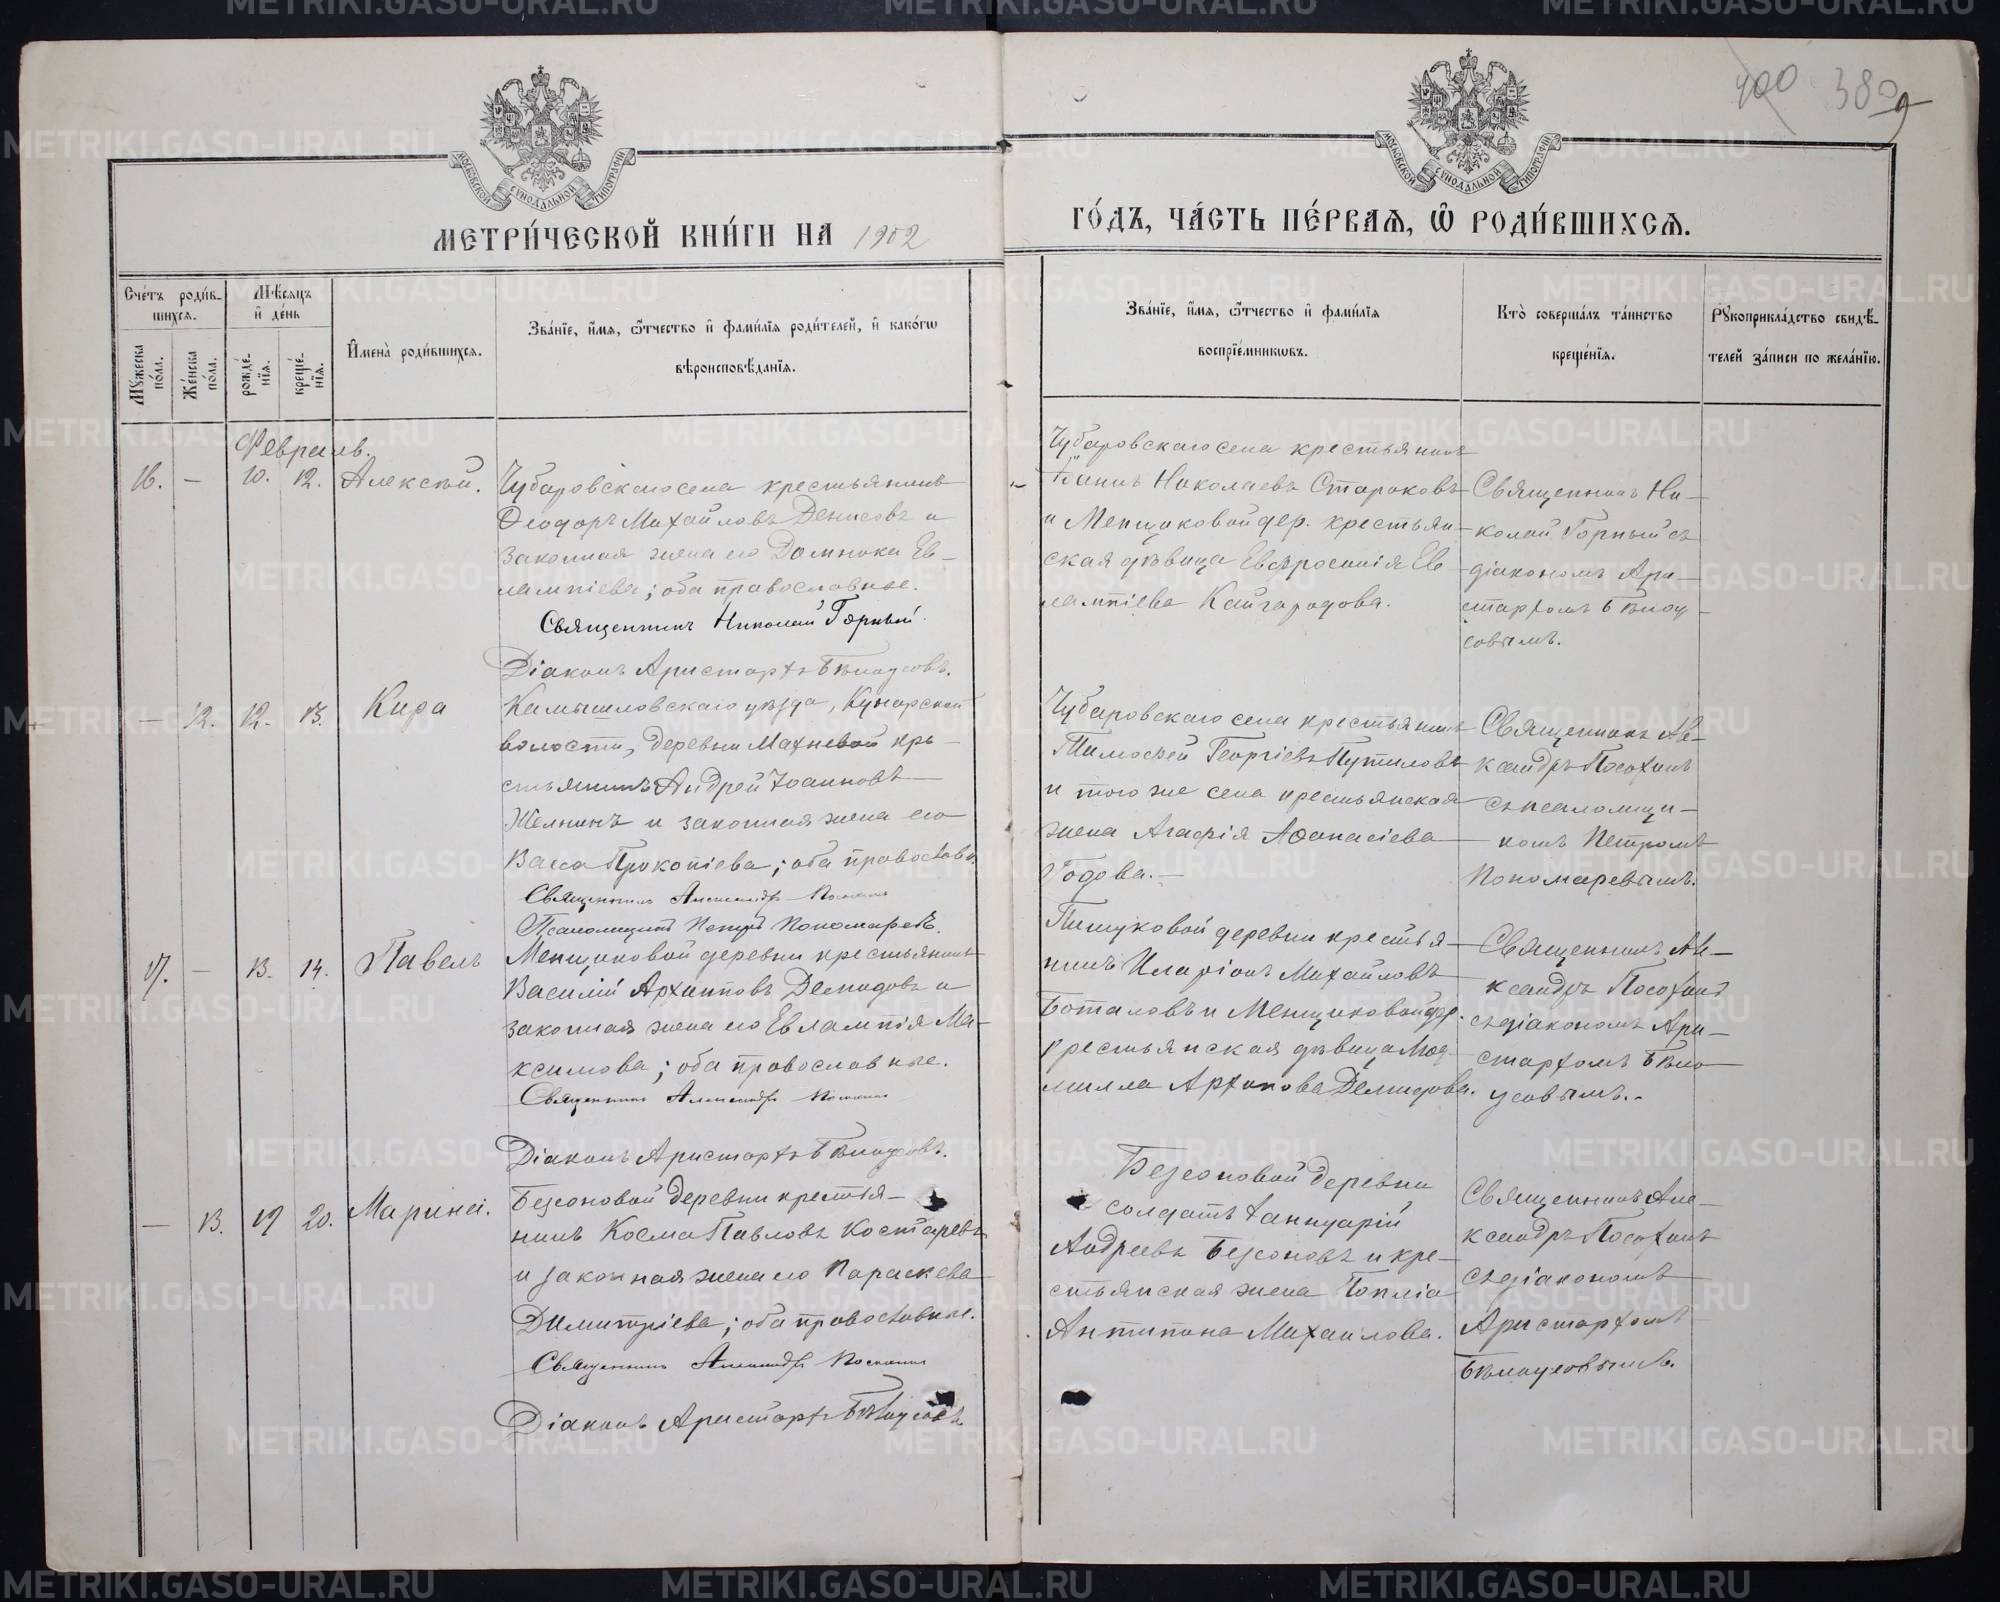 400 380
МОСКОВСКОЙ СѴНОДАЛЬНОЙ ТИПОГРАФІИ
МОСКОВСКОЙ СѴНОДАЛЬНОЙ ТИПОГРАФІИ
МЕТРИ́ЧЕСКОЙ КНИ́ГИ НА 1902
ГО́ДЪ, ЧА́СТЬ ПЕ́РВАѦ, Ѽ РОДИ́ВШИХСѦ.
Сче́тъ роди́в-
шихсѧ.
Мꙋ́жеска по́ла.
Же́нска по́ла.
Мѣ́сѧцъ
и҆ де́нь
рожде́-
нїѧ.
креще́-
нїѧ.
И҆мена̀ роди́вшихсѧ.
Зва́нїе, и҆́мѧ, ѻ҆́тчество и҆ фами́лїѧ роди́телей, и҆ како́гѡ
вѣроисповѣ́данїѧ.
Зва́нїе, и҆́мѧ, ѻ҆́тчество и҆ фами́лїѧ
воспрїе́мникѡвъ.
Кто̀ соверша́лъ та́инство
креще́нїѧ.
Рꙋкоприкла́дство свидѣ́-
телей за́писи по жела́нїю.
Февраль.
16. — 10. 12. Алексѣй.
Чубаровскаго села крестьянинъ
Ѳеодоръ Михайловъ Денисовъ и
законная жена его Домника Ев-
лампіева; оба православные.
Священникъ Николай Горный.
Діаконъ Аристархъ Бѣлоусовъ.
Чубаровскаго села крестьянинъ
Іоаннъ Николаевъ Стариковъ
и Менщиковой дер. крестьян-
ская дѣвица Евфросинія Ев
лампіева Кайгародова.
Священникъ Ни-
колай Горный съ
діакономъ Ари-
стархомъ Бѣлоу-
совымъ.
— 12. 12. 13. Кира
Камышловскаго уѣзда, Кунарской
волости, деревни Махневой кре-
стьянинъ Андрей Іоанновъ
Желнинъ и законная жена его
Васса Прокопіева; оба православн.
Священникъ Александръ
Псаломщикъ Петръ Пономаревъ.
Чубаровскаго села крестьянинъ
Тимофей Георгіевъ Путиловъ
и того же села крестьянская
жена Агафія Афанасіева
Годова.—
Священникъ Але-
ксандръ Посохинъ
съ псаломщи-
комъ Петромъ
Пономаревымъ.
17. — 13. 14. Павелъ
Менщиковой деревни крестьянинъ
Василій Архипповъ Демидовъ и
законная жена его Евлампія Ма-
ксимова; оба православные.
Священникъ Александръ
Діаконъ Аристархъ Бѣлоусовъ.
Пищуковой деревни крестья-
нинъ Иларіонъ Михайловъ
Боталовъ и Менщиковой дер.
крестьянская дѣвица Люд-
милла Архипова Демидова.
Священникъ Але-
ксандръ Посохинъ
съ діакономъ Ари-
стархомъ Бѣло
усовымъ.-
— 13. 19 20. Марина.
Безсоновой деревни крестья-
нинъ Косма Павловъ Костаревъ
и законная жена его Параскева
Димитріева; оба православные.
Священникъ Александръ
Діаконъ Аристархъ Бѣлоусовъ.
Безсоновой деревни
солдатъ Іаннуарій
Андреевъ Безсоновъ и кре-
стьянская жена
Антипина Михаилова.
Священникъ Але-
ксандръ Посохинъ
съ діакономъ
Аристархомъ
Бѣлоусовымъ.
METRIKI.GASO-URAL.RU